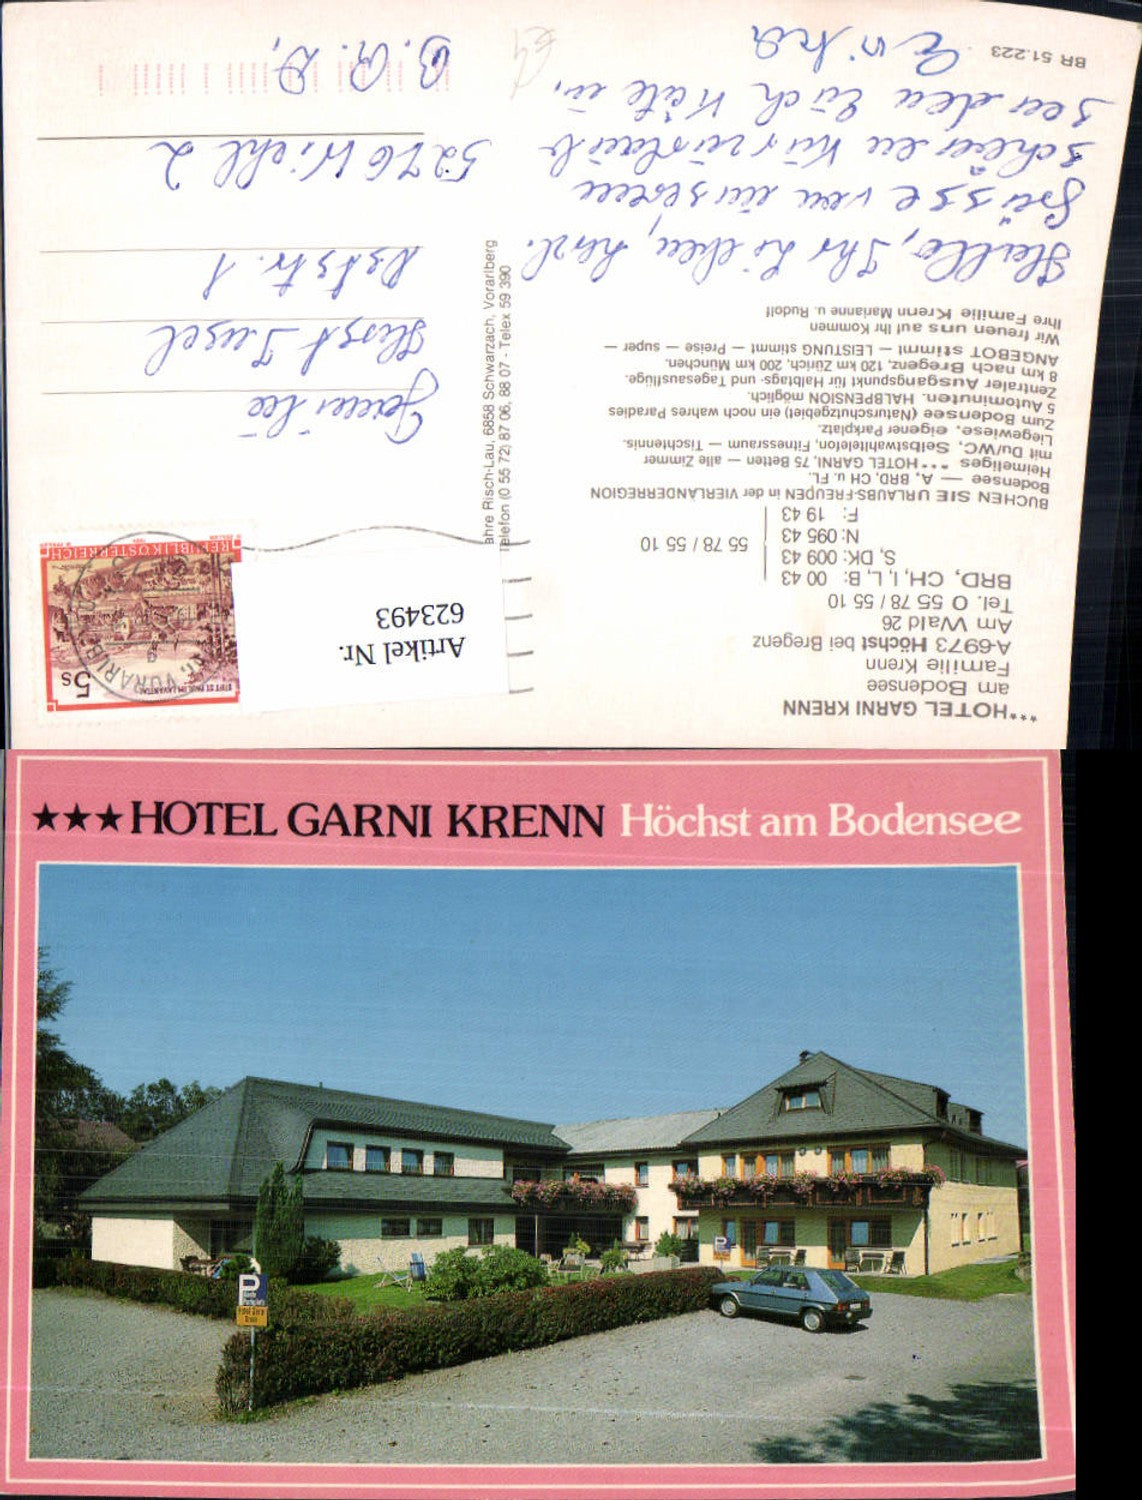 ***HOTEL GARNI KRENN
am Bodensee
Familie Krenn
A-6973 Höchst bei Bregenz
Am Wald 26
Tel. 0 55 78 / 55 10
BRD, CH, I, L, B: 00 43
S, DK: 009 43
N: 095 43
F: 19 43
55 78 / 55 10
BUCHEN SIE URLAUBS-FREUDEN in der VIERLÄNDERREGION
Bodensee — A, BRD, CH u. FL.
Heimeliges ***HOTEL GARNI, 75 Betten — alle Zimmer
mit Du/WC, Selbstwahltelefon, Fitnessraum — Tischtennis.
Liegewiese, eigener Parkplatz.
Zum Bodensee (Naturschutzgebiet) ein noch wahres Paradies
5 Autominuten. HALBPENSION möglich.
Zentraler Ausgangspunkt für Halbtags- und Tagesausflüge.
8 km nach Bregenz, 120 km Zürich, 200 km München.
ANGEBOT stimmt — LEISTUNG stimmt — Preise — super —
Wir freuen uns auf Ihr Kommen
Ihre Familie Krenn Marianne u. Rudolf
Hallo, Ihr Lieben, herzl.
Grüsse von unserem
schönen Kurzurlaub
senden Euch
BR 51.223
Artikel Nr.
623493
5s
STIFT ST. PAUL IM LAVANTTAL
REPUBLIK ÖSTERREICH
VORARLB
ahre Risch-Lau, 6858 Schwarzach, Vorarlberg
Telefon (0 55 72) 87 06, 88 07 - Telex 59 390
Familie
Horst
5276 Wiehl 2
★★★HOTEL GARNI KRENN Höchst am Bodensee
P
Hotel Garni
Krenn
P